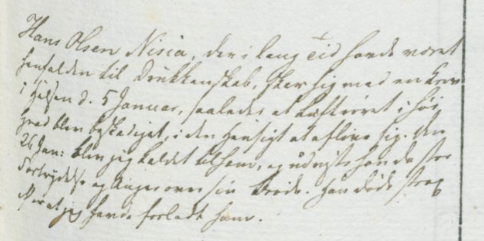 Hans Olsen Nisia, der i lang Tid havde været
henfalden til Drukkenskab, skar sig med en Kniv
i Halsen d. 5 Januar, saaledes at Luftrøret i høi
grad blev beskadiget, i den Hensigt at aflive sig. Den
26 Jan: blev jeg kaldet til ham, og udviste han da stor
Fortrydelse og Anger over sin Brøde. Han døde strax
efter at jeg havde forladt ham.